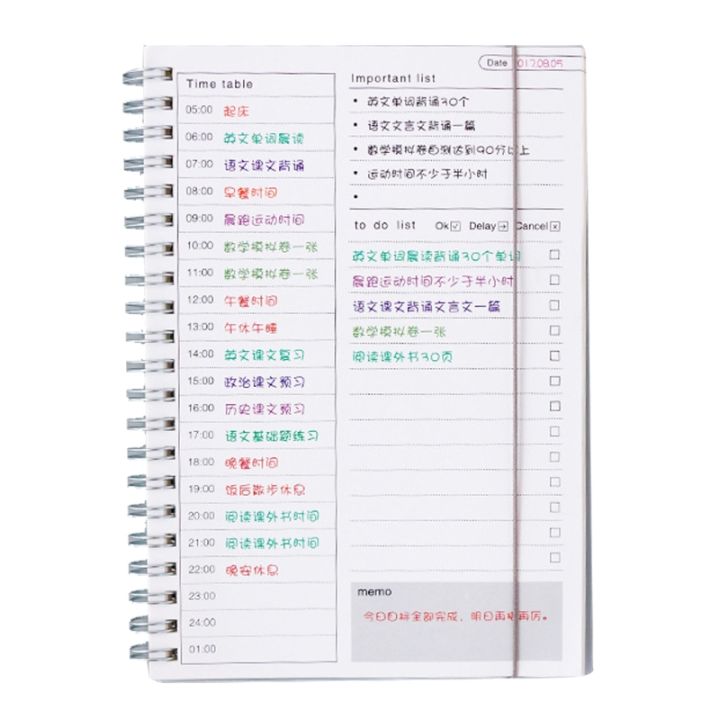 Date 017.08.05
Time table
05:00 起床
06:00 英文单词晨读
07:00 语文课文背诵
08:00 早餐时间
09:00 晨跑运动时间
10:00 数学模拟卷一张
11:00 数学模拟卷一张
12:00 午餐时间
13:00 午休午睡
14:00 英文课文复习
15:00 政治课文预习
16:00 历史课文预习
17:00 语文基础题练习
18:00 晚餐时间
19:00 饭后散步休息
20:00 阅读课外书时间
21:00 阅读课外书时间
22:00 晚安休息
23:00
24:00
01:00
Important list
• 英文单词背诵30个
• 语文文言文背诵一篇
• 数学模拟卷自测达到90分以上
• 运动时间不少于半小时
•
to do list Ok Delay Cancel
英文单词晨读背诵30个单词
晨跑运动时间不少于半小时
语文课文背诵文言文一篇
数学模拟卷一张
阅读课外书30页
memo
今日目标全部完成，明日再接再厉。